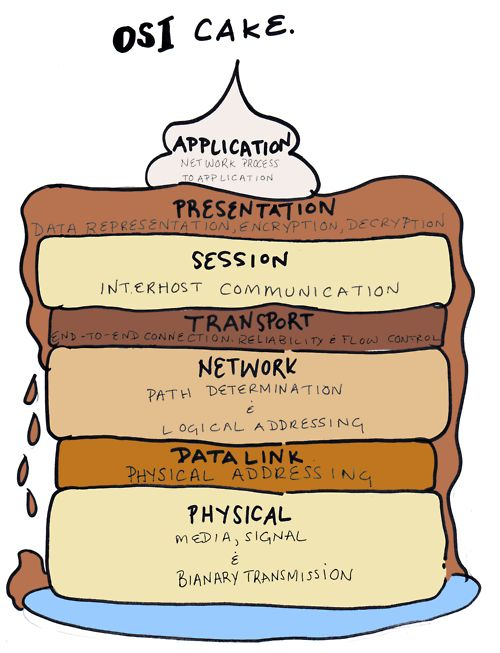 OSI CAKE.
APPLICATION
NETWORK PROCESS
TO APPLICATION
PRESENTATION
DATA REPRESENTATION, ENCRYPTION, DECRYPTION
SESSION
INTERHOST COMMUNICATION
TRANSPORT
END-TO-END CONNECTION. RELIABILITY & FLOW CONTROL
NETWORK
PATH DETERMINATION
&
LOGICAL ADDRESSING
DATA LINK
PHYSICAL ADDRESSING
PHYSICAL
MEDIA, SIGNAL
&
BIANARY TRANSMISSION